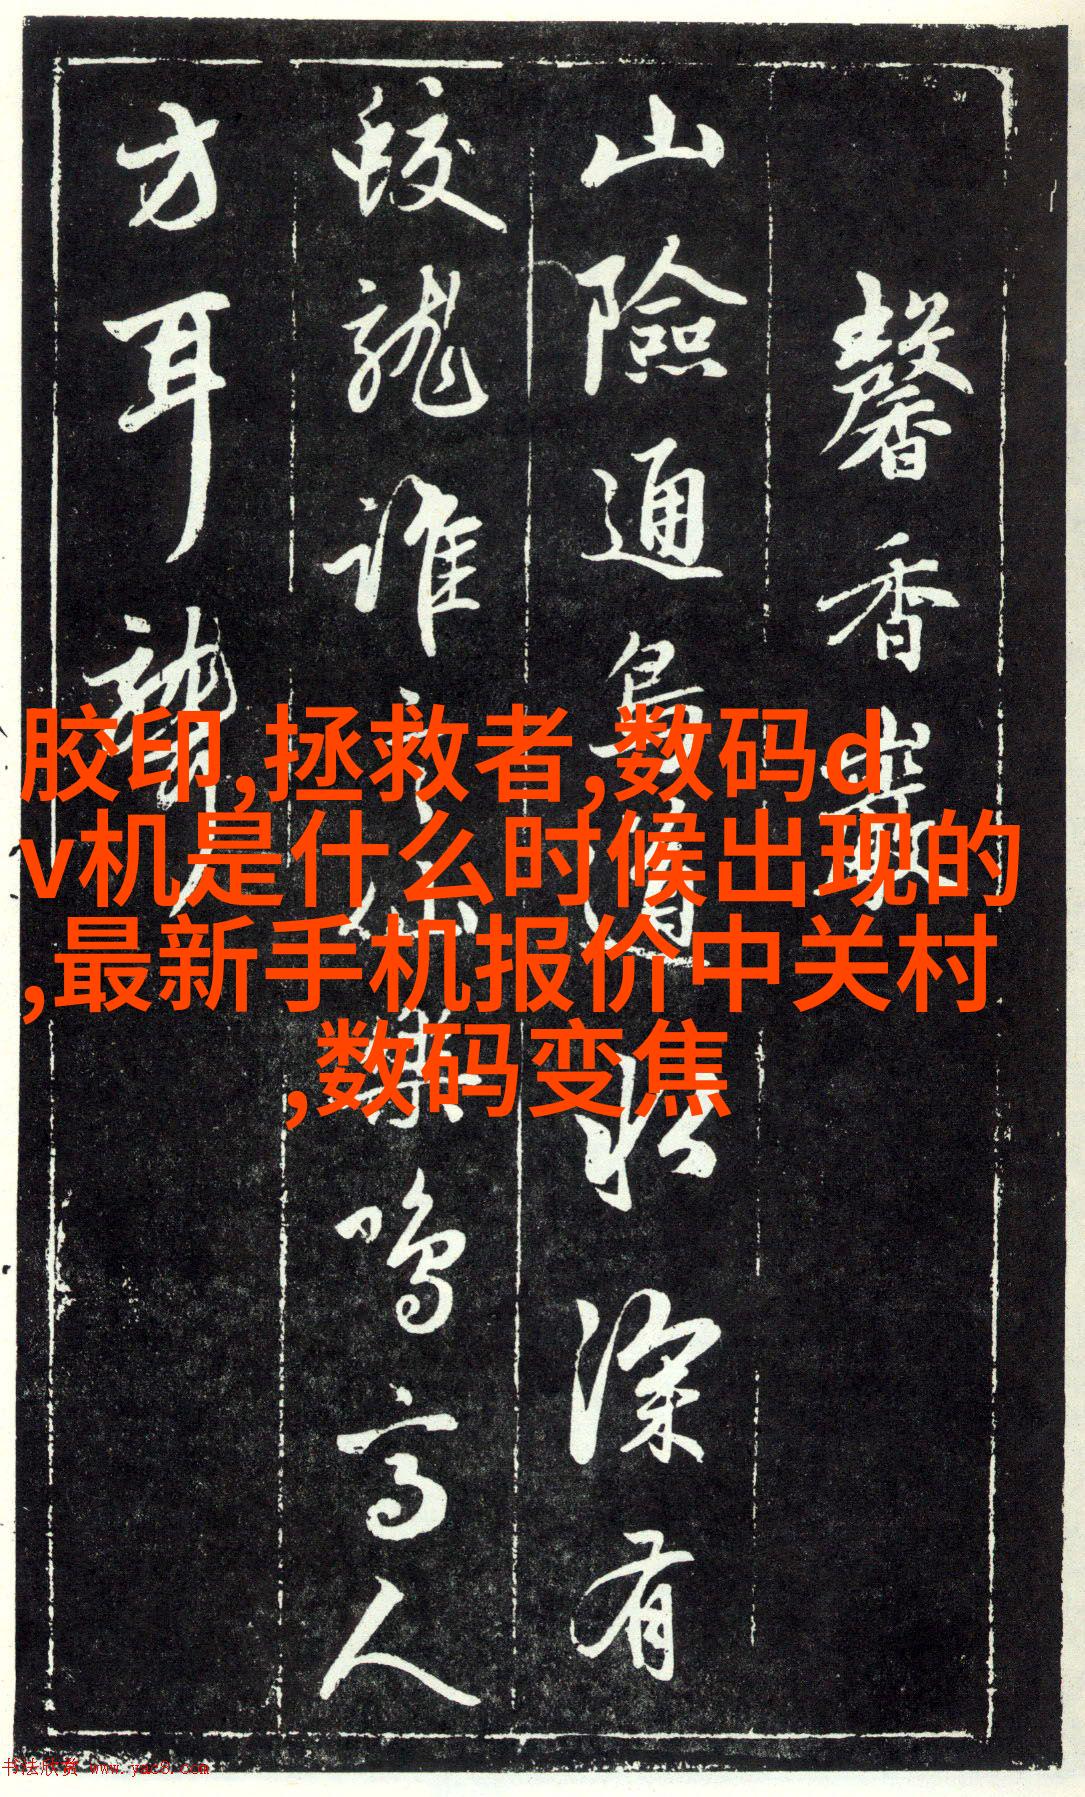 馨香巖
山險通鳥道水深有
蛟龍誰言樂鳴高人
方耳聾
胶印,拯救者,数码d
v机是什么时候出现的
,最新手机报价中关村
,数码变焦
书法欣赏 www.yac8.com